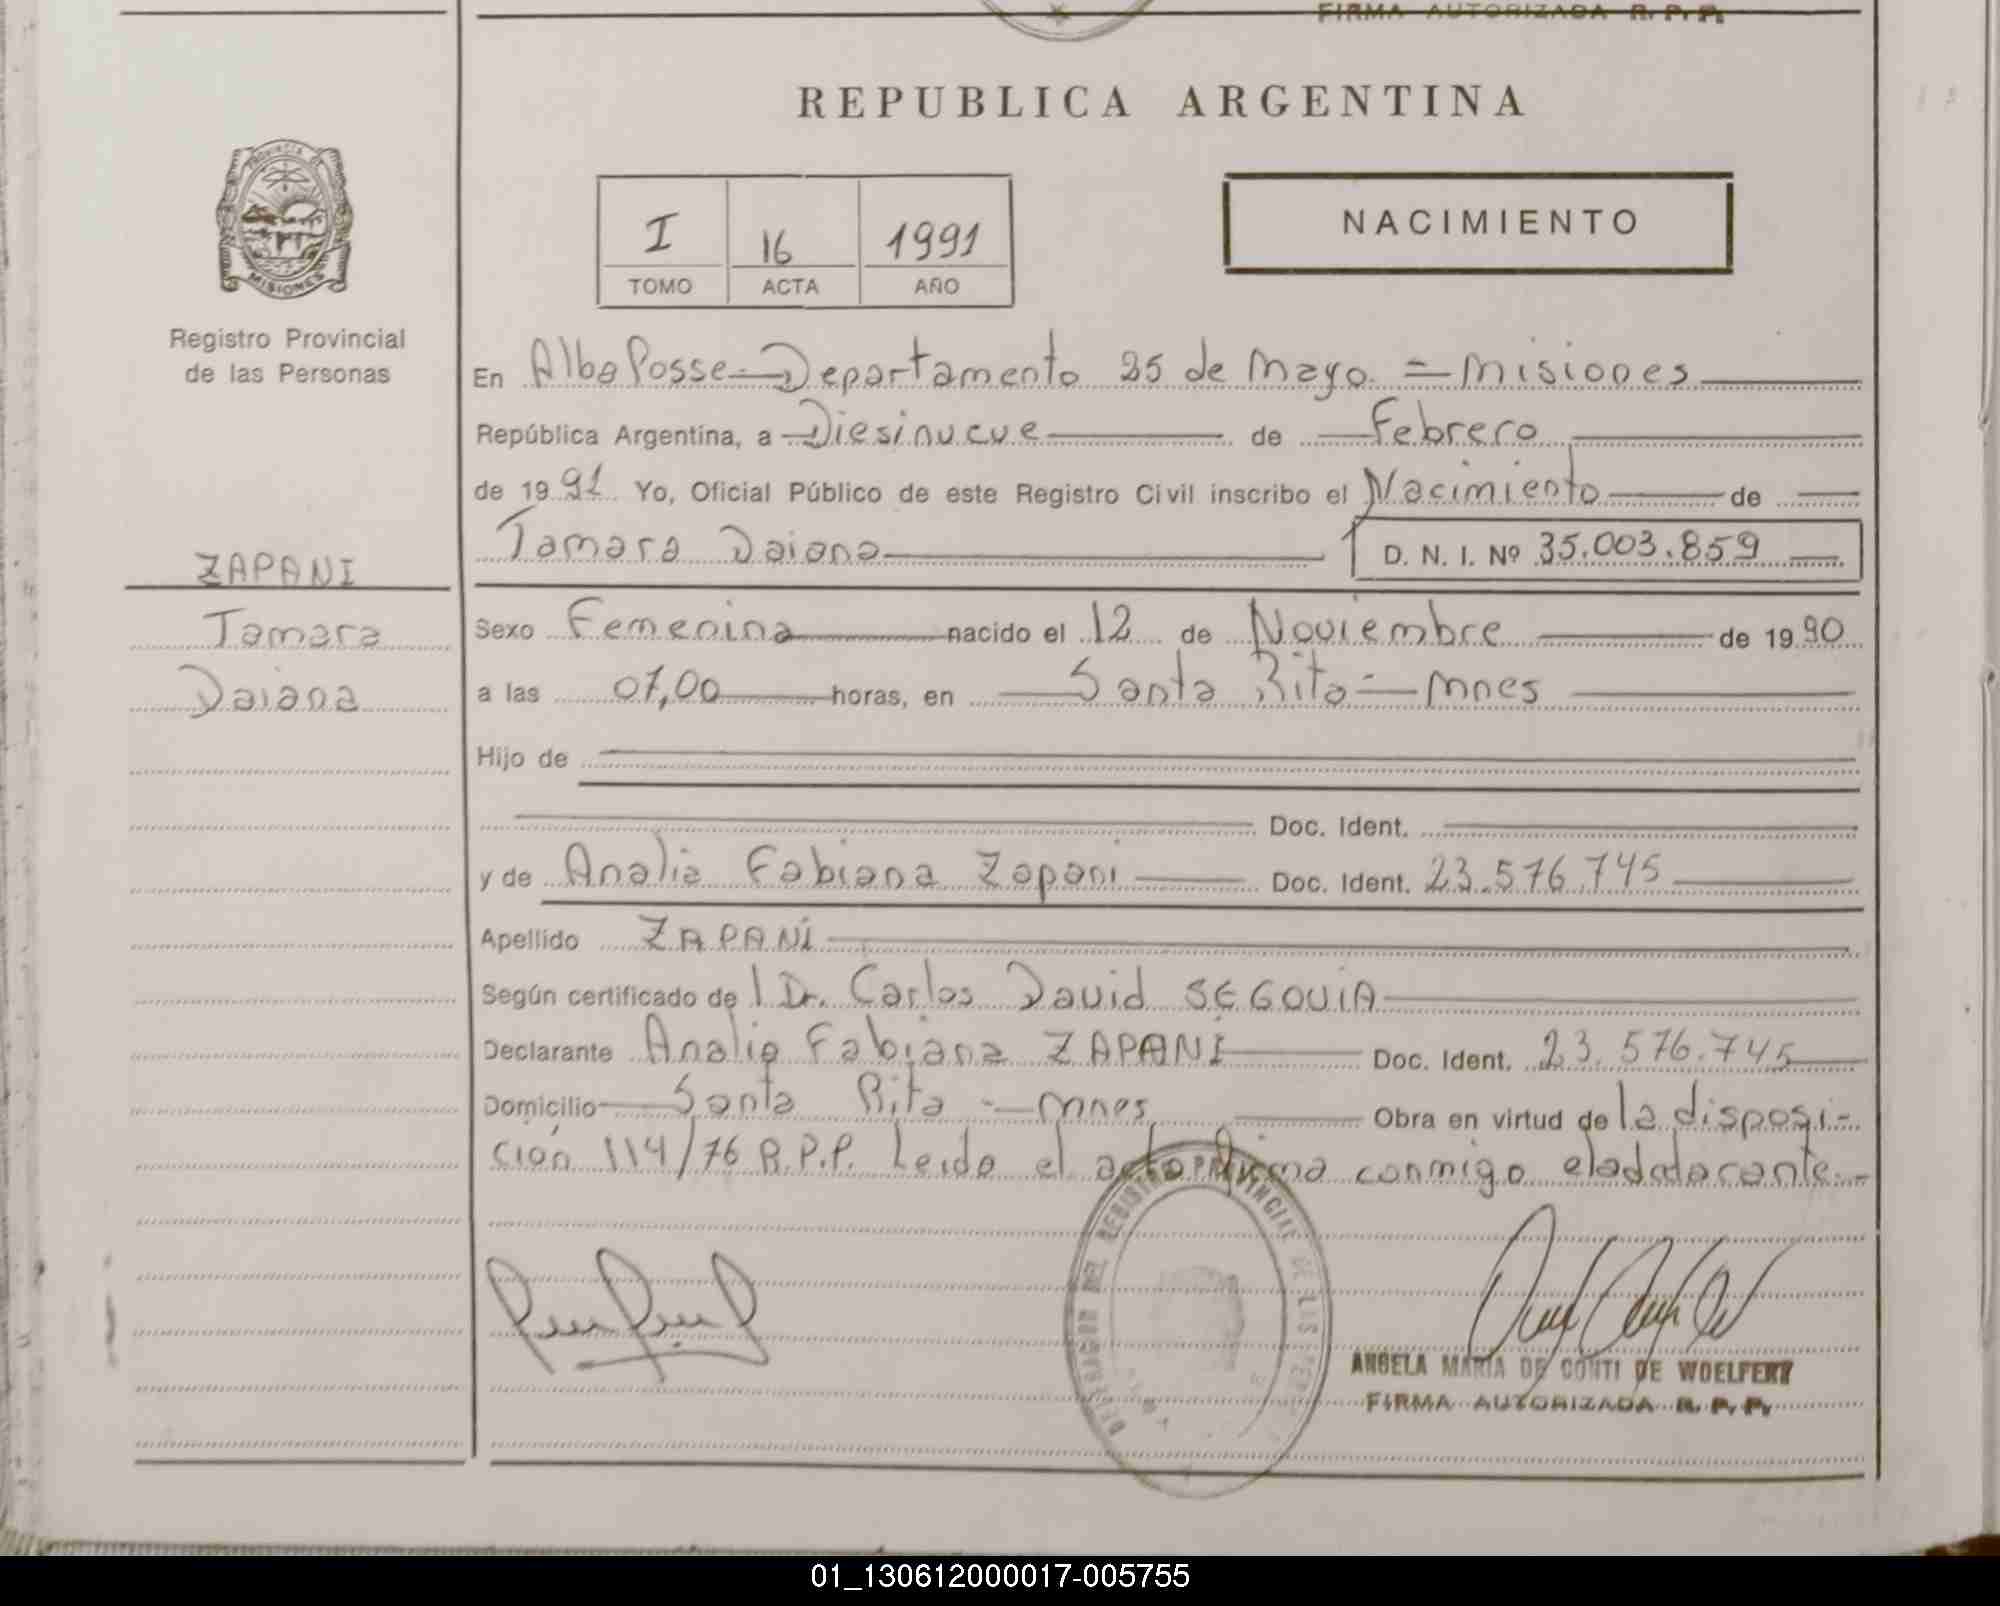 FIRMA AUTORIZADA R. P. P.
REPUBLICA ARGENTINA
PROVINCIA DE
MISIONES
Registro Provincial
de las Personas
I 16 1991
TOMO ACTA AÑO
NACIMIENTO
En Alba Posse - Departamento 25 de Mayo. = Misiones
República Argentina, a Diesinueve de Febrero
de 1991 Yo, Oficial Público de este Registro Civil inscribo el Nacimiento de
Tamara Daiana D. N. I. Nº 35.003.859
ZAPANI
Tamara
Daiana
Sexo Femenina nacido el 12 de Noviembre de 1990
a las 07,00 horas, en Santa Rita - Mnes
Hijo de
Doc. Ident.
y de Analia Fabiana Zapani Doc. Ident. 23.576.745
Apellido ZAPANI
Según certificado de l Dr. Carlos David SEGOVIA
Declarante Analia Fabiana ZAPANI Doc. Ident. 23.576.745
Domicilio Santa Rita - Mnes Obra en virtud de la disposi-
ción 114/76 R.P.P. Leida el acta firma conmigo
DELEGACION DEL REGISTRO PROVINCIAL DE LAS
ANGELA MARIA DE CONTI DE WOELFERT
FIRMA AUTORIZADA R. P. P.
01_130612000017-005755